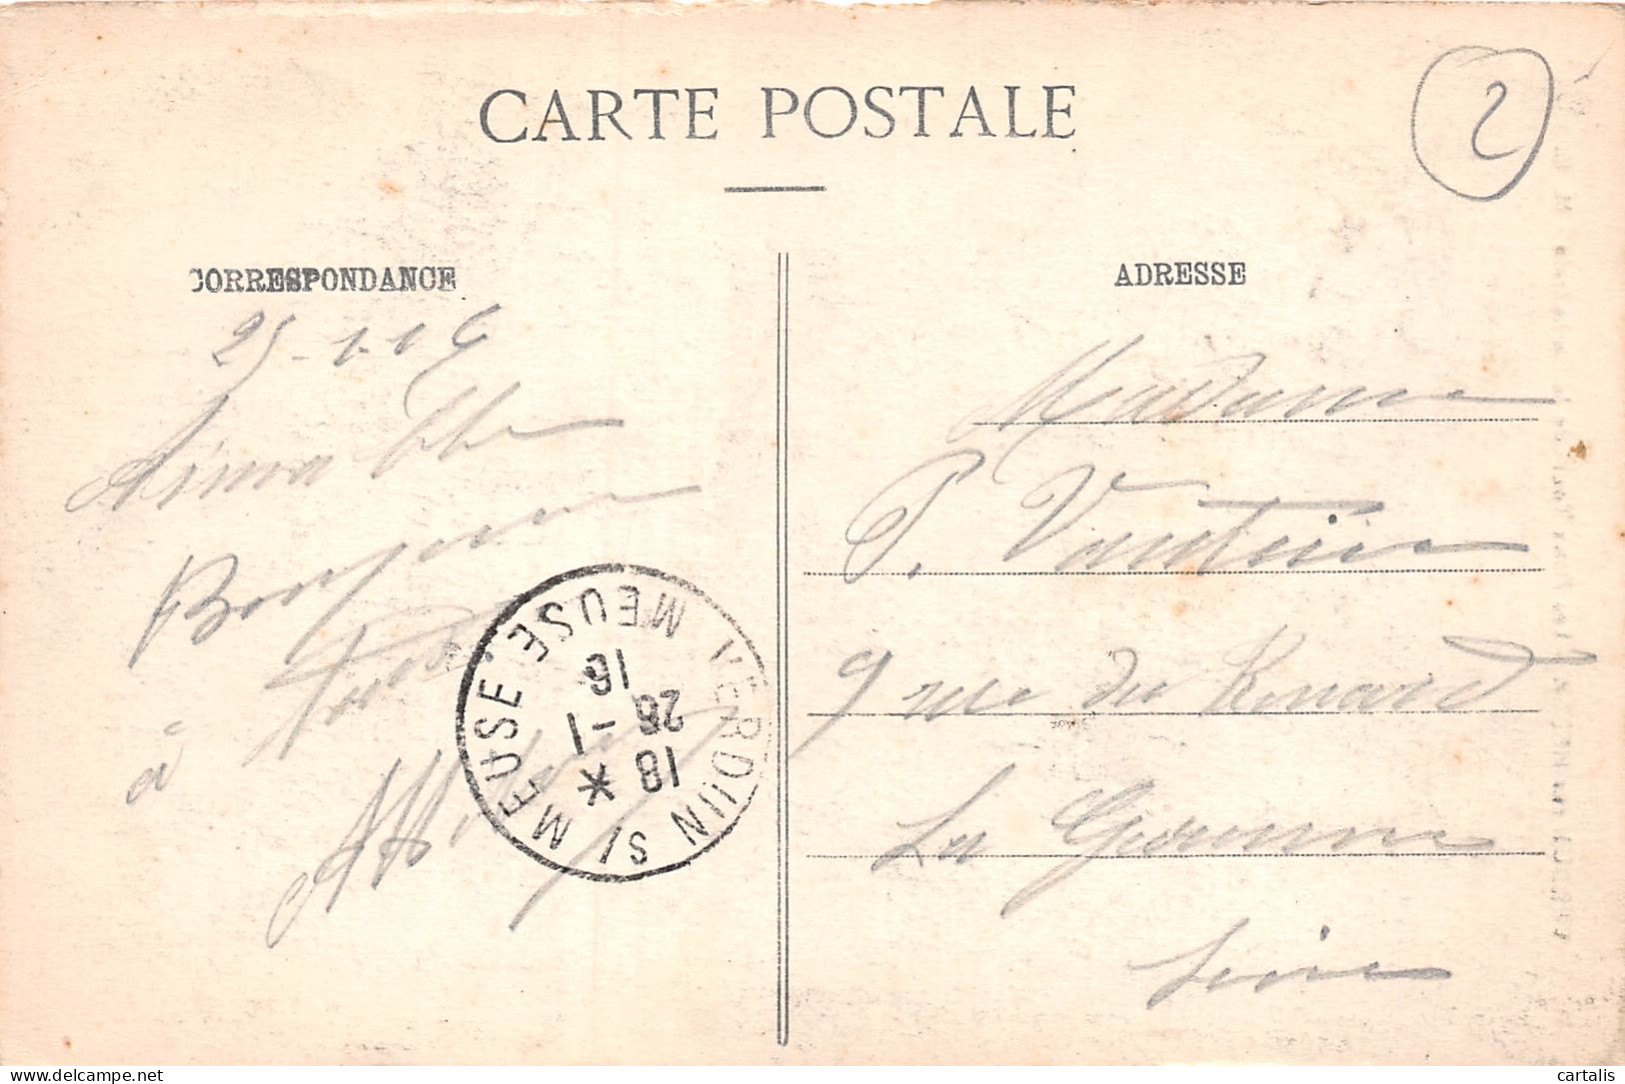 CARTE POSTALE
2
CORRESPONDANCE
25-1-16
Aimable
Bonjour
à
ADRESSE
Madame
P. Vautrin
9 rue du Renard
La Garenne
Seine
VERDUN S/ MEUSE . MEUSE
18 *
26 - 1
16
delcampe.net
cartalis